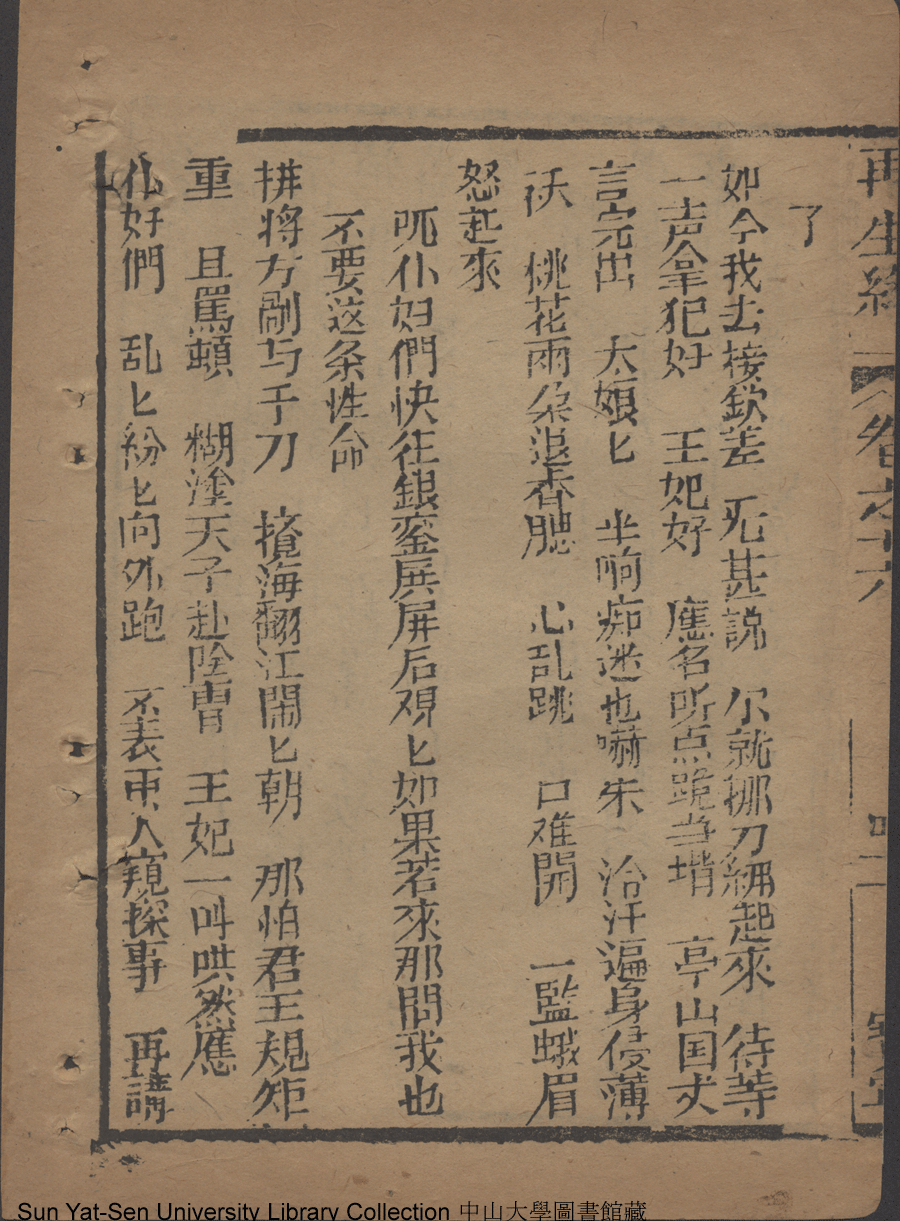 再生緣 卷之十六
了
如今我去接欽差 死甚説 尔就挪刀綑起來 待等
一声拿犯好 王妃好 應名听点跪当堦 亭山国丈
言完出 太娘匕 半响痴迷也嚇朱 洽汗遍身侵薄
沃 桃花兩朵退香腮 心乱跳 口难開 一監蛾眉
怒起來
呃仆妇們快往銀銮展屏后观匕如果若來那問我也
不要这条性命
拼将方剮与于刀 攪海翻江閙匕朝 那怕君王規矩
重 且罵頓 糊塗天子赴陰曹 王妃一叫哄然應
仆好們 乱匕紛匕向外跑 不表兩人窺探事 再講
Sun Yat-Sen University Library Collection 中山大學圖書館藏